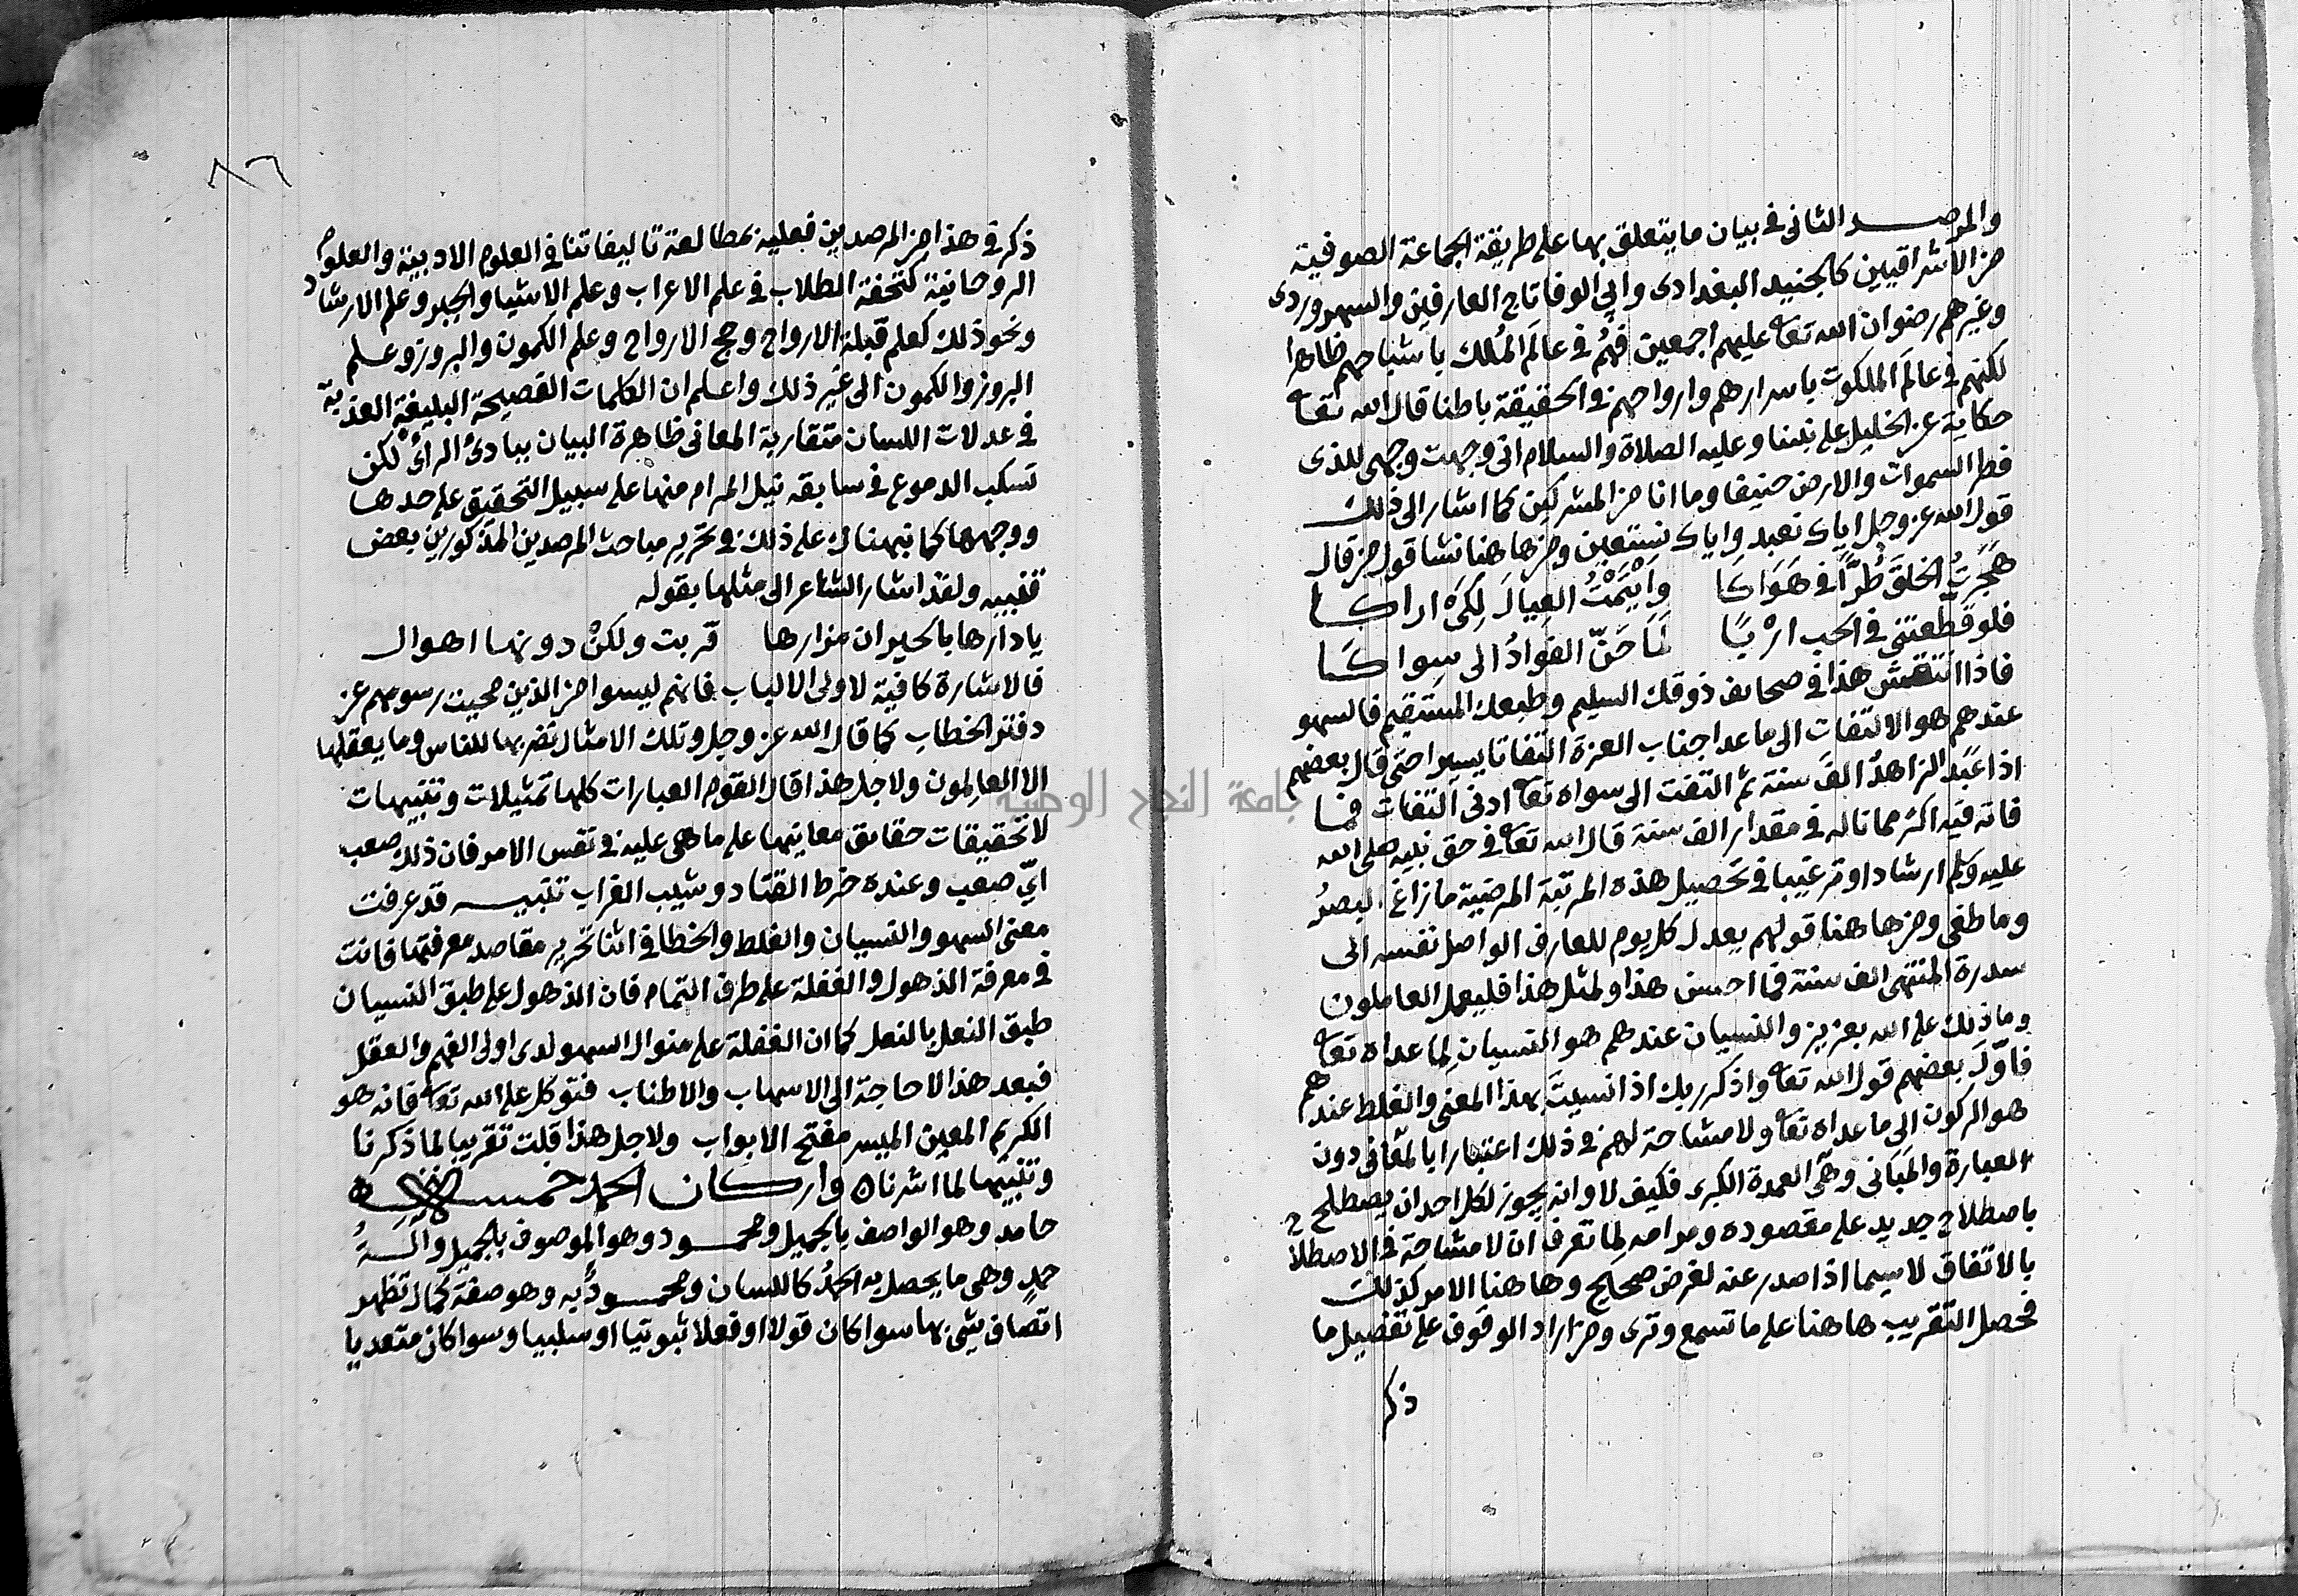 والمرصد الثانى فى بيان ما يتعلق بها على طريقة الجماعة الصوفية
من الاشراقيين كالجنيد البغدادى وابى الوفا تاج العارفين والسهروردى
وغيرهم رضوان الله تعا عليهم اجمعين فهم فى عالم الملك باشباحهم ظاهرا
لكنهم فى عالم الملكوت باسرارهم وارواحهم فى الحقيقة باطنا قال الله تعا
حكاية عن الخليل على نبينا وعليه الصلاة والسلام انى وجهت وجهى للذى
فطر السموات والارض حنيفا وما انا من المشركين كما اشار الى ذلك
قول الله عز وجل اياك نعبد واياك نستعين ومن هاهنا نشا قول من قال
هَجَرتُ الخلقَ طُرًّا فى هَوَاكا وَاَيْتَمْتُ العِيالَ لِكَىْ اراكا
فلو قطعتنى فى الحب ارْبًا لمَا حَنّ الفؤادُ الى سِواكا
فاذا انتقش هذا فى صحائف ذوقك السليم وطبعك المستقيم فالسهو
عندهم هو الالتفات الى ما عدا جناب العزة التفاتا يسيرا حتى قال بعضهم
اذا عبَد الزاهدُ الفَ سنة ثم التفت الى سواه تعا ادنى التفات فما
فاته فيه اكثر مما ناله فى مقدار الف سنة قال الله تعا فى حق نبيه صلى الله
عليه وسلم ارشادا وترغيبا فى تحصيل هذه المرتبة المرضية ما زاغ البصرُ
وما طغى ومن هاهنا قولهم يعدل كل يوم للعارف الواصل نفسه الى
سدرة المنتهى الف سنة فما احسن هذا ولمثل هذا فليعمل العاملون
وما ذلك على الله بعزيز والنسيان عندهم هو النسيان لِما عداه تعا
فاوّلَ بعضهم قول الله تعا واذكر ربك اذا نسيتَ بهذا المعنى والغلط عندهم
هو الركون الى ما عداه تعا ولا مشاحة لهم فى ذلك اعتبارا بالمعانى دون
العبارة والمبانى وهى العمدة الكبرى فكيف لا وانه يجوز لكل احد ان يصطلح
باصطلاح جديد على مقصوده ومرامه لِما تعرف ان لا مشاحة فى الاصطلاح
بالاتفاق لاسيما اذا صدر عنه لغرض صحيح وهاهنا الامر كذلك
فحصل التقريب هاهنا على ما تسمع وترى ومن اراد الوقوف على تفصيل ما
ذكر
٨٦
ذكر فى هذا من المرصدين فعليه بمطالعة تاليفاتنا فى العلوم الادبية والعلوم
الروحانية كتحفة الطلاب فى علم الاعراب وعلم الاشيا والجبر وعلم الارشاد
ونحو ذلك كعلم قبلة الارواح وحج الارواح وعلم الكمون والبروز وعلم
البروز والكمون الى غير ذلك واعلم ان الكلمات الفصيحة البليغة العذبة
فى عدلات اللسان متقاربة المعانى ظاهرة البيان ببادئ الرأى لكن
تسكب الدموع فى سابقه نيل المرام منها على سبيل التحقيق على حدها
ووجهها كما نبهناك على ذلك فى تحرير مباحث المرصدين المذكورين بعض
تنبيه ولقد اشار الشاعر الى مثلها بقوله
يا دارها بالحيران مزارها قربت ولكنْ دونها اهوال
فالاشارة كافية لاولى الالباب فانهم ليسوا من الذين محيت رسومهم عن
دفتر الخطاب كما قال الله عز وجل وتلك الامثال نضربها للناس وما يعقلها
الا العالمون ولاجل هذا قال القوم العبارات كلها تمثيلات وتنبيهات
لا تحقيقات حقائق معانيها على ما هى عليه فى نفس الامر فان ذلك صعب
اىّ صعب وعنده خرط القتاد وشيب الغراب تنبيه قد عرفت
معنى السهو والنسيان والغلط والخطا فى اثنا تحرير مقاصد معرفتها فانت
فى معرفة الذهول والغفلة على طرف التمام فان الذهول على طبق النسيان
طبق النعل بالنعل كما ان الغفلة على منوال السهو لدى اولى الفهم والعقل
فبعد هذا لا حاجة الى الاسهاب والاطناب فتوكل على الله تعا فانه هو
الكريم المعين الميسر مفتح الابواب ولاجل هذا قلت تقريبا لما ذكرنا
وتنبيها لما اشرناه واركان الحمد خمسة
حامد وهو الواصف بالجميل ومحمود وهو الموصوف بالجميل وآلةُ
حمدٍ وهى ما يحصل به الحمدُ كاللسان ومحمودٌ به وهو صفة كمال تظهر
اتصاف شئ بها سوا كان قولا او فعلا ثبوتيا او سلبيا وسوا كان متعديا
جامعة النجاح الوطنية